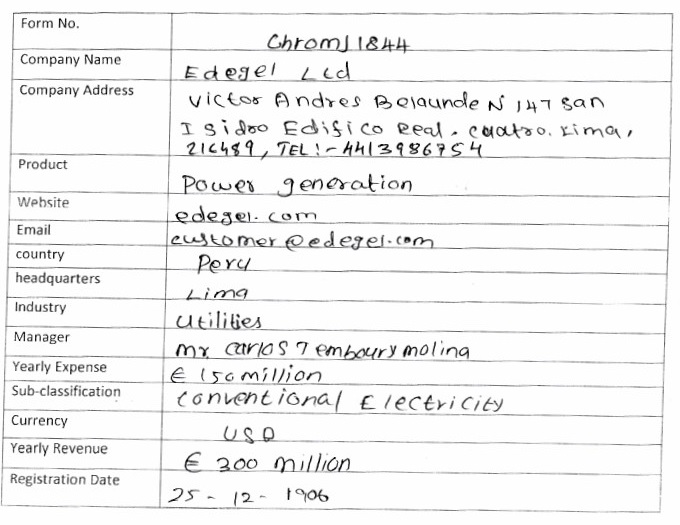 Form No.
Chroms1844
Company Name
Edegel Ltd
Company Address
Victor Andres Belaunde N 147 San
Isidro Edifico Real. cuatro. Lima,
216489, TEL:- 4413986754
Product
Power generation
Website
edegel.com
Email
customer@edegel.com
country
Peru
headquarters
Lima
Industry
Utilities
Manager
Mr Carlos Temboury molina
Yearly Expense
€ 150 million
Sub-classification
Conventional Electricity
Currency
USD
Yearly Revenue
€ 300 million
Registration Date
25 - 12 - 1906